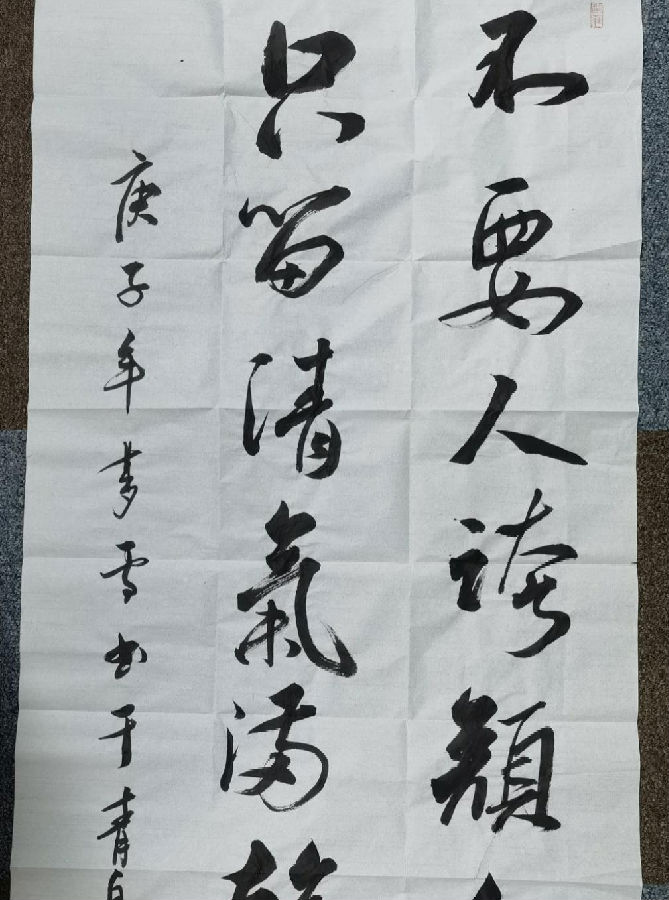 不要人誇顏
只留清氣滿
庚子年梦雪书于青